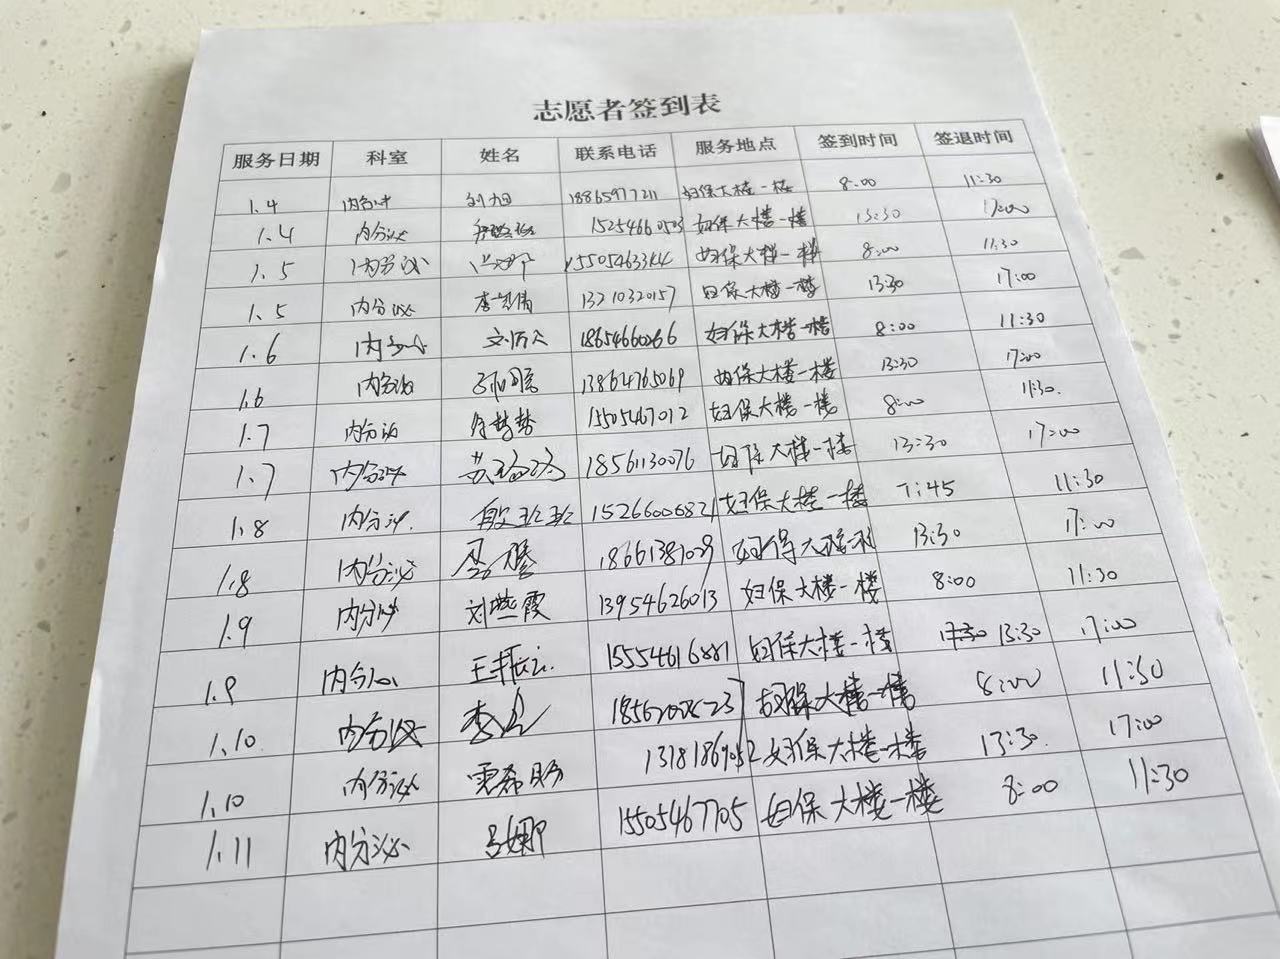 志愿者签到表
服务日期 科室 姓名 联系电话 服务地点 签到时间 签退时间
1.4 内分泌 刘旭 18865977211 妇保大楼一楼 8:00 11:30
1.4 内分泌 15254660503 妇保大楼一楼 13:30 17:00
1.5 内分泌 15505463344 妇保大楼一楼 8:00 11:30
1.5 内分泌 13210320157 妇保大楼一楼 13:30 17:00
1.6 内分泌 18654660266 妇保大楼一楼 8:00 11:30
1.6 内分泌 13864765069 妇保大楼一楼 13:30 17:00
1.7 内分泌 15505467012 妇保大楼一楼 8:00 11:30
1.7 内分泌 18561130076 妇保大楼一楼 13:30 17:00
1.8 内分泌 殷班班 15266006821 妇保大楼一楼 7:45 11:30
1.8 内分泌 18661387029 妇保大楼一楼 13:30 17:00
1.9 内分泌 刘燕霞 13954626013 妇保大楼一楼 8:00 11:30
1.9 内分泌 15554616881 妇保大楼一楼 13:30 17:00
1.10 内分泌 妇保大楼一楼 8:00 11:30
1.10 内分泌 13181869052 妇保大楼一楼 13:30 17:00
1.11 内分泌 吕娜 15505467705 妇保大楼一楼 8:00 11:30